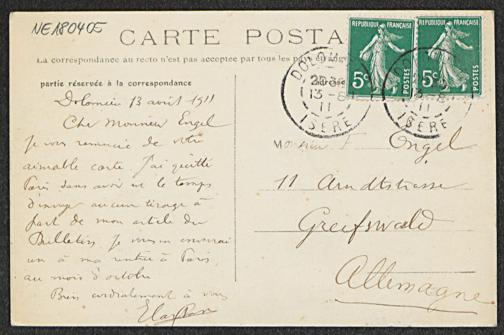 NE180405
CARTE POSTA
La correspondance au recto n'est pas acceptée par tous les pays
RÉPUBLIQUE FRANÇAISE
5c
POSTES
RÉPUBLIQUE FRANÇAISE
5c
POSTES
DOLOM
13 -8
11
ISERE
11
ISERE
partie réservée à la correspondance
Dolomieu 13 août 1911
Cher Monsieur Engel
je vous remercie de votre
aimable carte. J'ai quitté
Paris sans avoir eu le temps
d'envoyer aucun tirage à
part de mon article du
Bulletin, je vous en enverrai
un à ma rentrée à Paris,
au mois d'octobre
Bien cordialement à vous
Monsieur F. Engel
11 Arndtstrasse
Greifswald
Allemagne